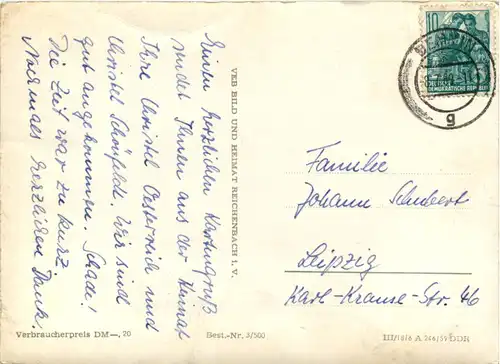 Einen herzlichen Kartengruß
sendet Ihnen aus der Heimat
Ihre Christel Oesterreich und
Christel Schönfeldt. Wir sind
gut angekommen. Schade!
Die Zeit war zu kurz
Nochmals herzlichen Dank.
VEB BILD UND HEIMAT REICHENBACH I. V.
10
DEUTSCHE
DEMOKRATISCHE REPUBLIK
g
Familie
Johann Schubert
Leipzig
Karl-Krause-Str. 46
Verbraucherpreis DM —, 20
Best.-Nr. 3/500
III/18/6 A 266/59 DDR